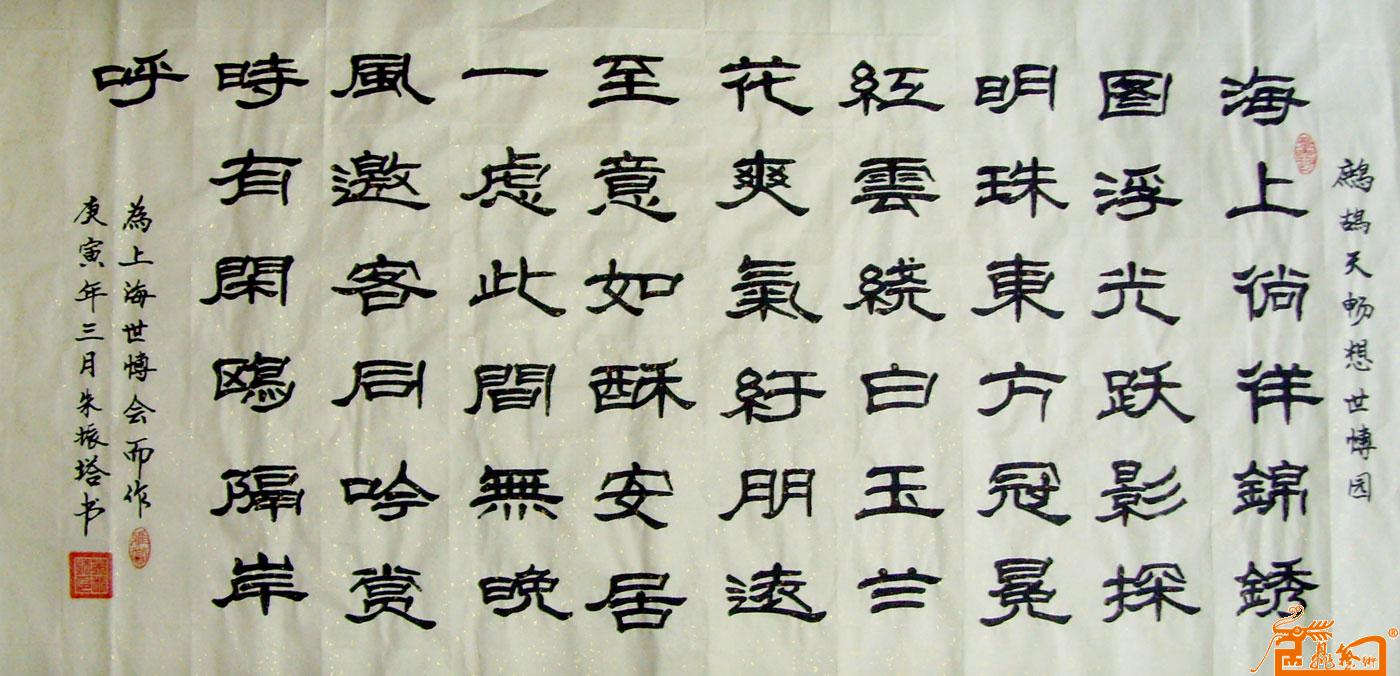 鹧鸪天畅想世博园
海上徜徉錦銹
图浮光跃影探
明珠東方冠冕
紅雲绕白玉兰
花爽氣紆朋遠
至意如酥安居
一虑此間無晚
風邀客同吟赏
時有閑鷗隔岸
呼
為上海世博会而作
庚寅年三月朱振塔书